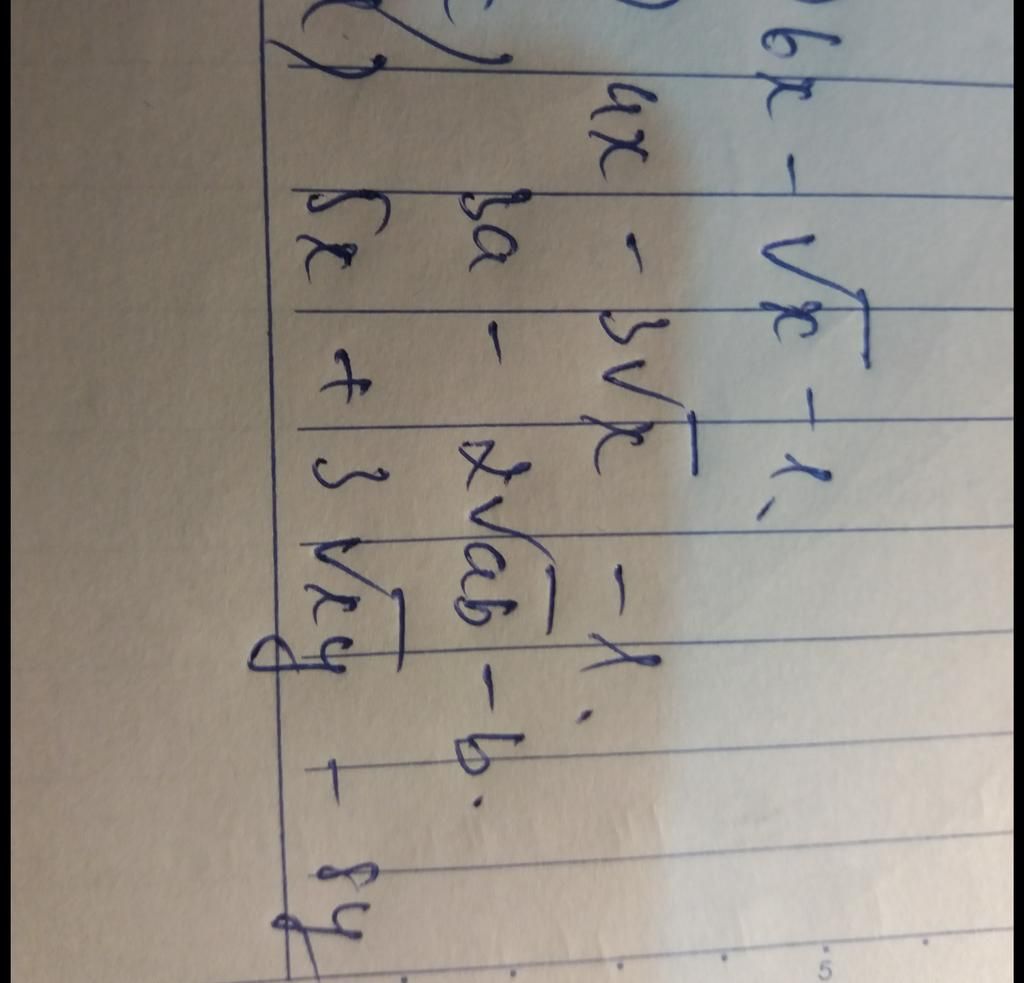 ) 6x - √x - 1.
4x - 3√x - 1.
3a - 2√ab - b.
) 5x + 3√xy - 8y
5